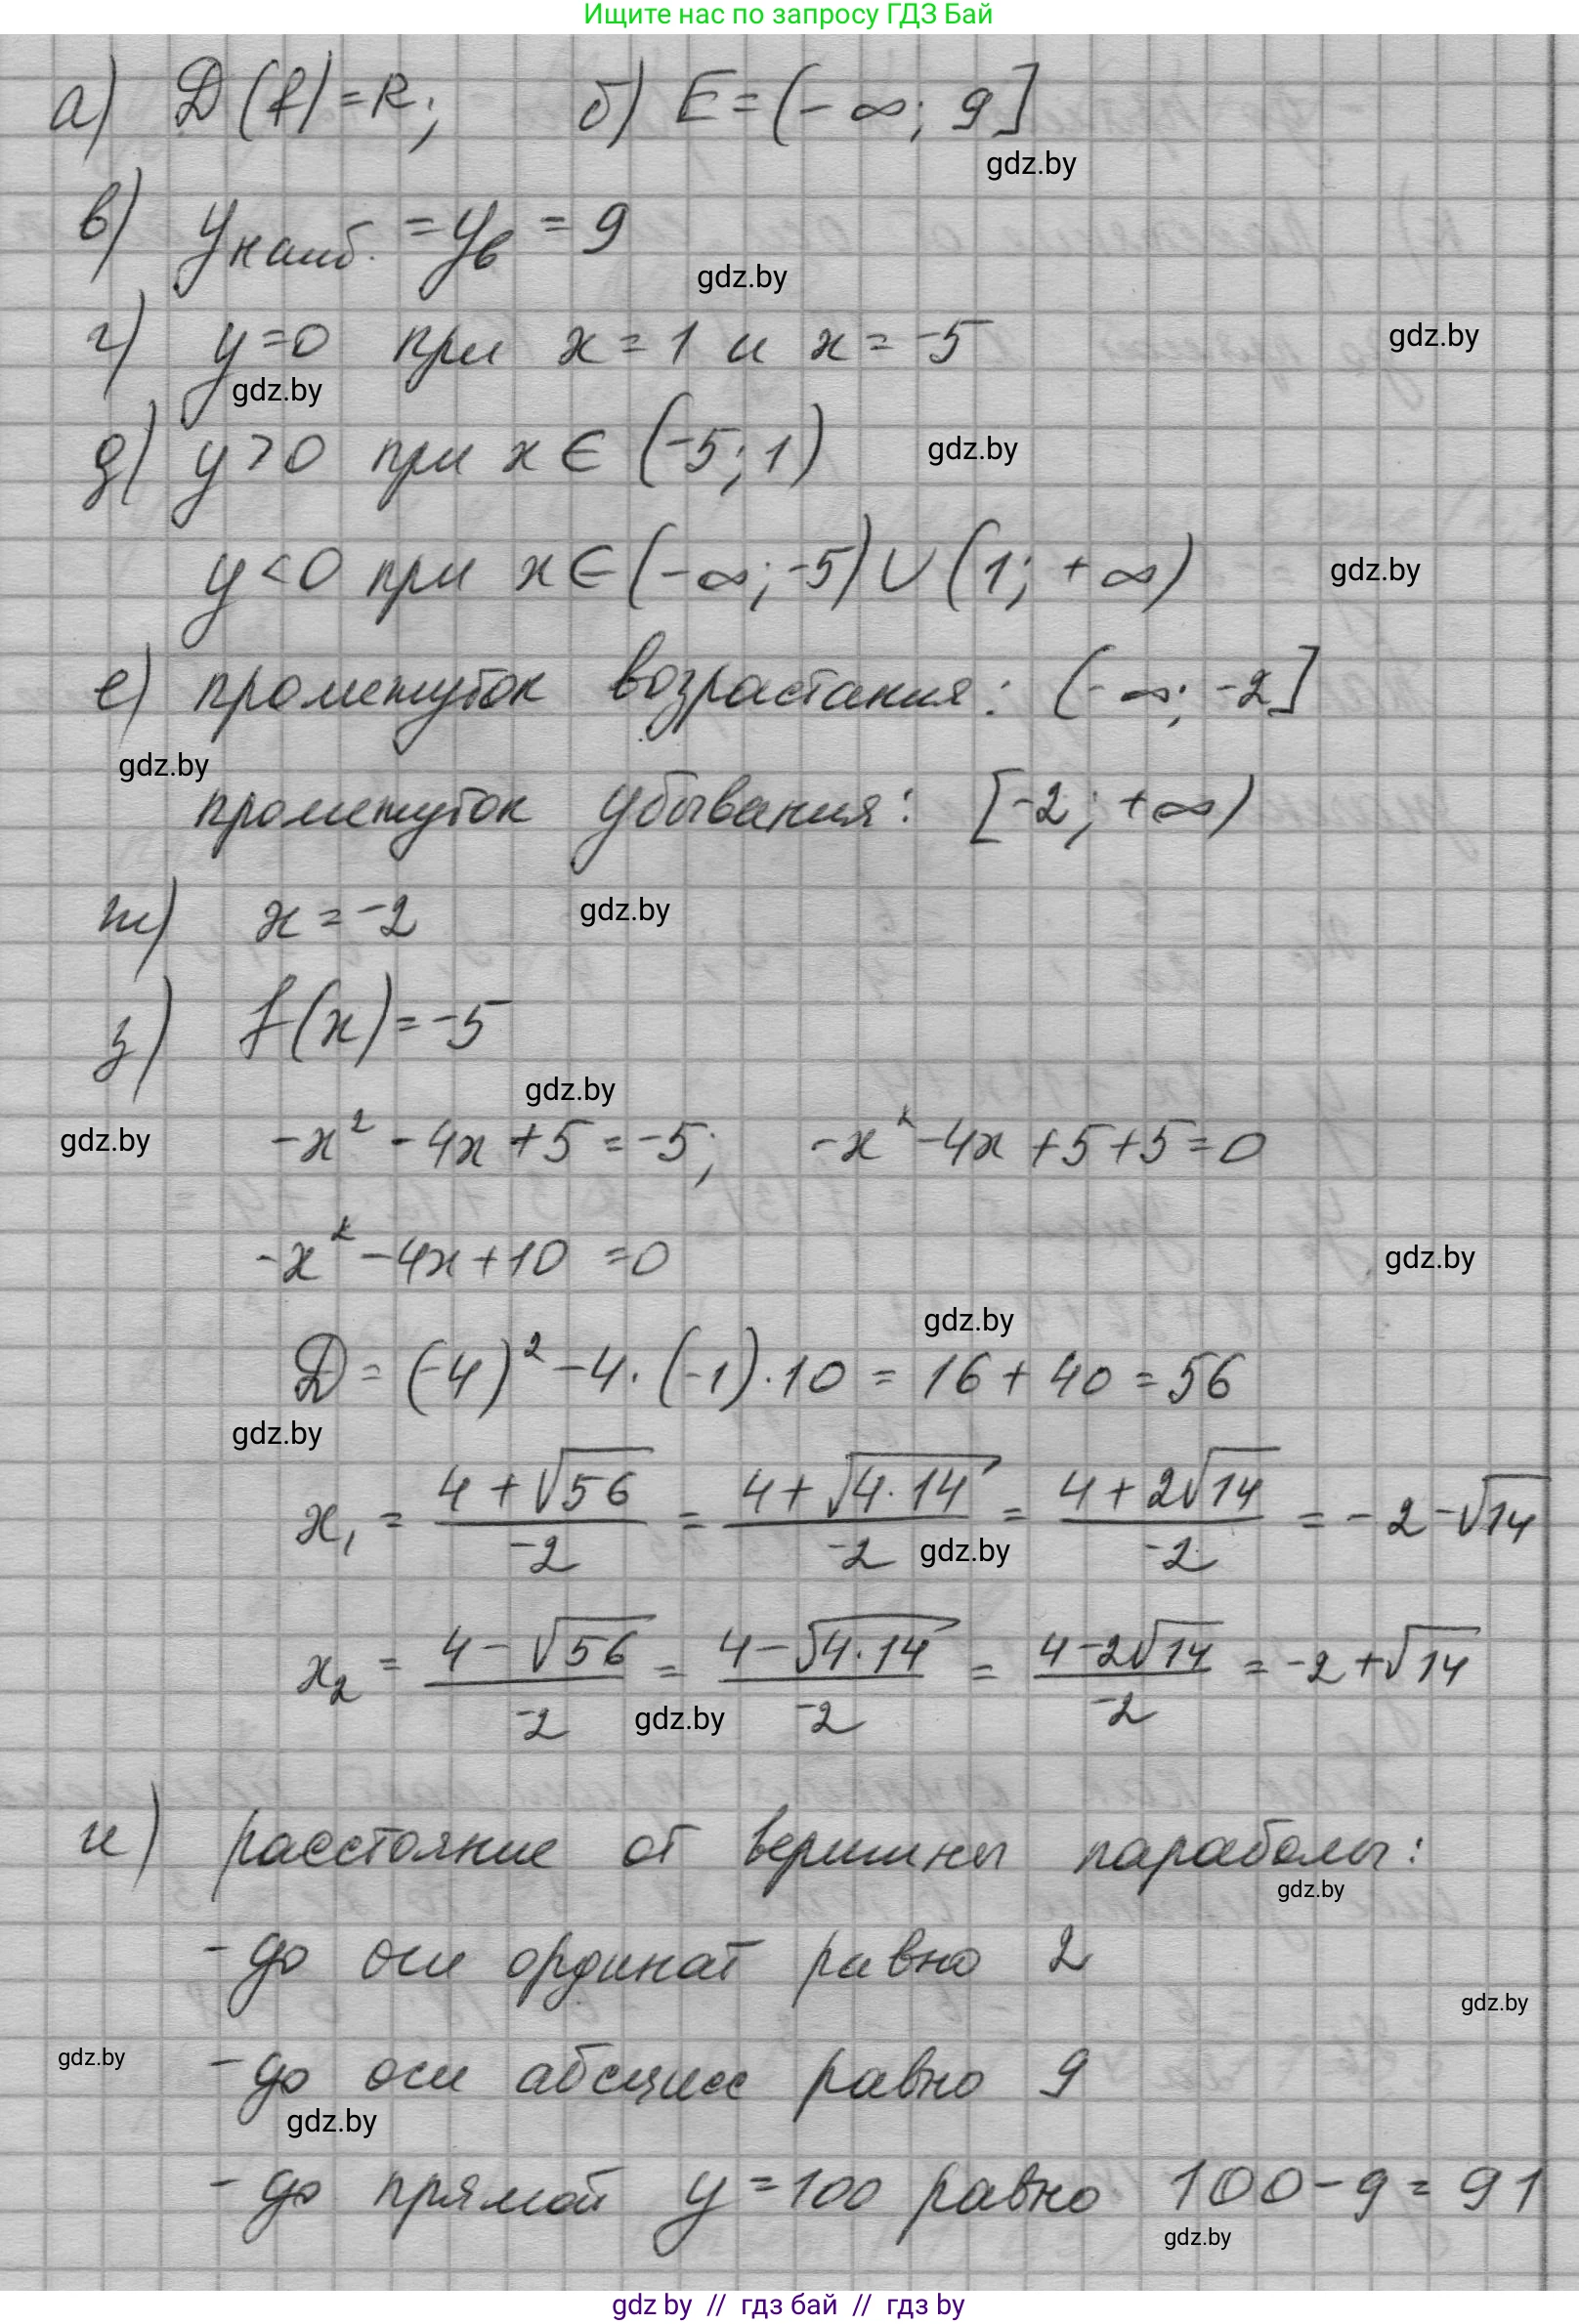 Ищите нас по запросу ГДЗ Бай
а) D(f)=R; б) E=(-∞; 9]
gdz.by
в) y наиб. = yв = 9
gdz.by
г) y=0 при x=1 и x=-5
gdz.by
gdz.by
д) y>0 при x∈(-5;1)
gdz.by
y<0 при x∈(-∞;-5)∪(1;+∞)
gdz.by
е) промежуток возрастания: (-∞; -2]
gdz.by
промежуток убывания: [-2; +∞)
ж) x=-2
gdz.by
з) f(x)=-5
gdz.by
gdz.by
-x²-4x+5=-5; -x²-4x+5+5=0
-x²-4x+10=0
gdz.by
gdz.by
D=(-4)²-4·(-1)·10=16+40=56
gdz.by
x₁ = (4+√56)/(-2) = (4+√(4·14))/(-2) = (4+2√14)/(-2) = -2-√14
gdz.by
x₂ = (4-√56)/(-2) = (4-√(4·14))/(-2) = (4-2√14)/(-2) = -2+√14
gdz.by
и) расстояние от вершины параболы:
gdz.by
- до оси ординат равно 2
gdz.by
gdz.by
- до оси абсцисс равно 9
gdz.by
- до прямой y=100 равно 100-9=91
gdz.by
gdz.by // гдз бай // гдз by